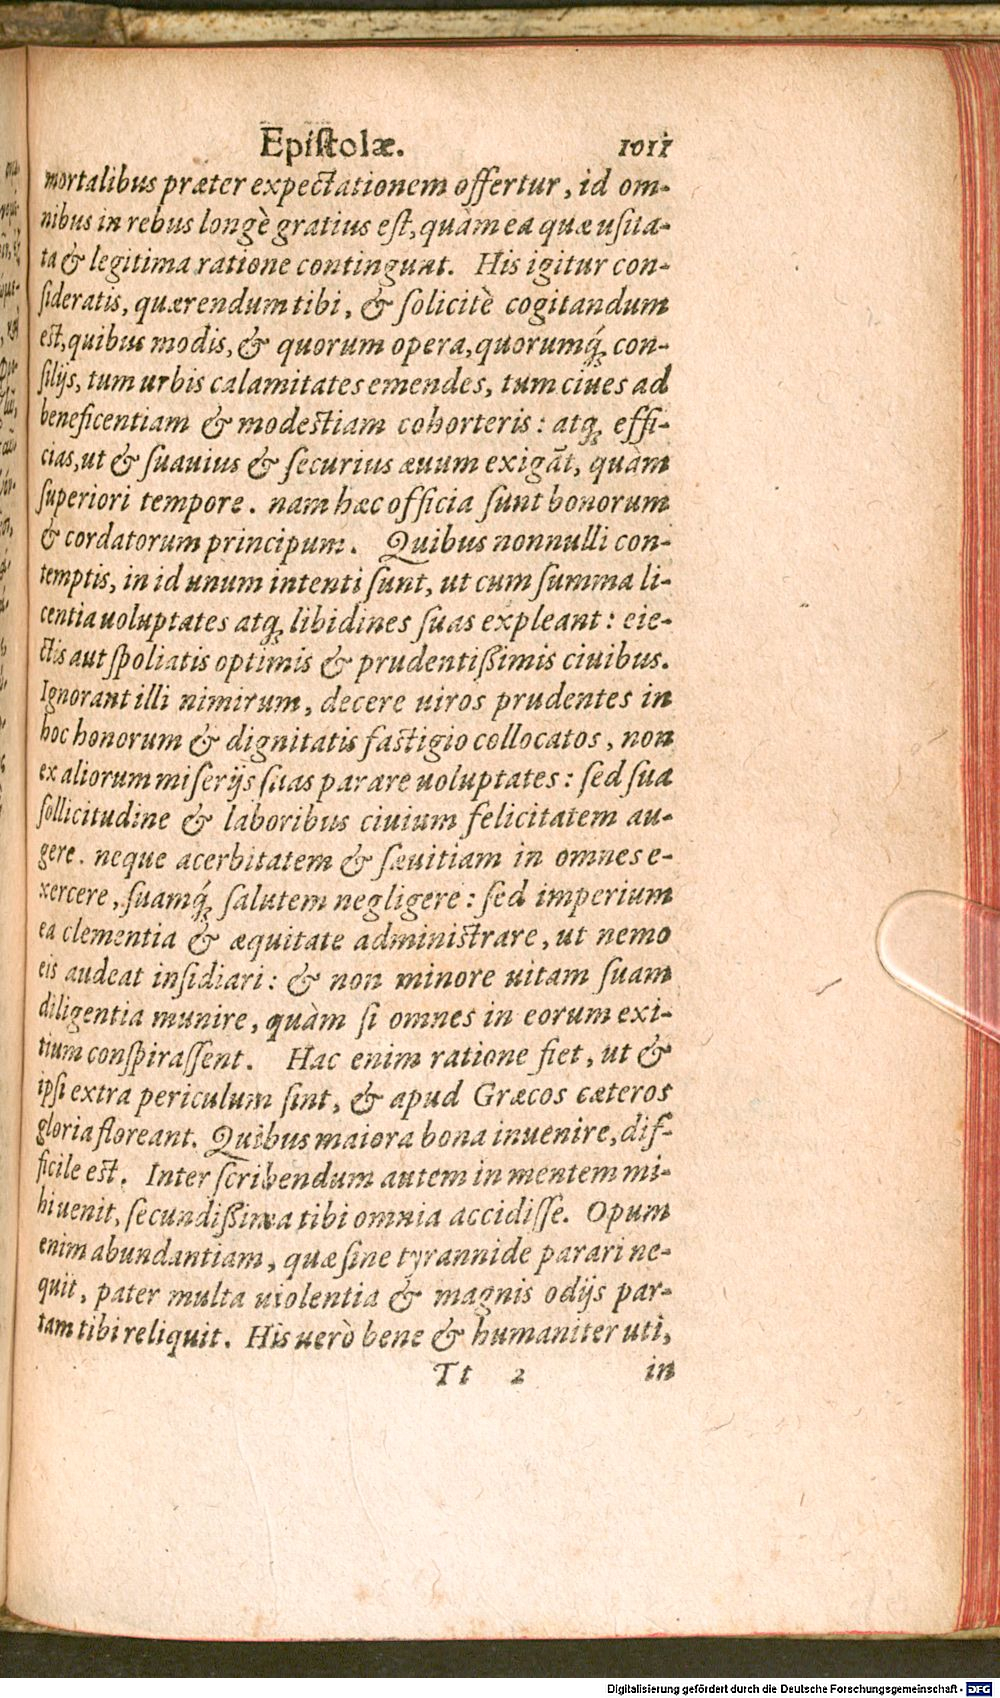 Epiſtolæ. 1011
mortalibus præter expectationem offertur, id om-
nibus in rebus longè gratius eſt, quàm ea quæ uſita-
ta & legitima ratione contingunt. His igitur con-
ſideratis, quærendum tibi, & ſolicitè cogitandum
eſt, quibus modis, & quorum opera, quorumq́; con-
ſilijs, tum urbis calamitates emendes, tum ciues ad
beneficentiam & modeſtiam cohorteris: atq; effi-
cias, ut & ſuauius & ſecurius æuum exigāt, quàm
ſuperiori tempore. nam hæc officia ſunt bonorum
& cordatorum principum. Quibus nonnulli con-
temptis, in id unum intenti ſunt, ut cum ſumma li-
centia uoluptates atq; libidines ſuas expleant: eie-
ctis aut ſpoliatis optimis & prudentißimis ciuibus.
Ignorant illi nimirum, decere uiros prudentes in
hoc honorum & dignitatis faſtigio collocatos, non
ex aliorum miſerijs ſuas parare uoluptates: ſed ſua
ſollicitudine & laboribus ciuium felicitatem au-
gere. neque acerbitatem & ſæuitiam in omnes e-
xercere, ſuamq́; ſalutem negligere: ſed imperium
ea clementia & æquitate adminiſtrare, ut nemo
eis audeat inſidiari: & non minore uitam ſuam
diligentia munire, quàm ſi omnes in eorum exi-
tium conſpiraſſent. Hac enim ratione fiet, ut &
ipſi extra periculum ſint, & apud Græcos cæteros
gloria floreant. Quibus maiora bona inuenire, dif-
ficile eſt. Inter ſcribendum autem in mentem mi-
hi uenit, ſecundißima tibi omnia accidiſſe. Opum
enim abundantiam, quæ ſine tyrannide parari ne-
quit, pater multa uiolentia & magnis odijs par-
tam tibi reliquit. His uerò bene & humaniter uti,
Tt 2 in
Digitalisierung gefördert durch die Deutsche Forschungsgemeinschaft - DFG